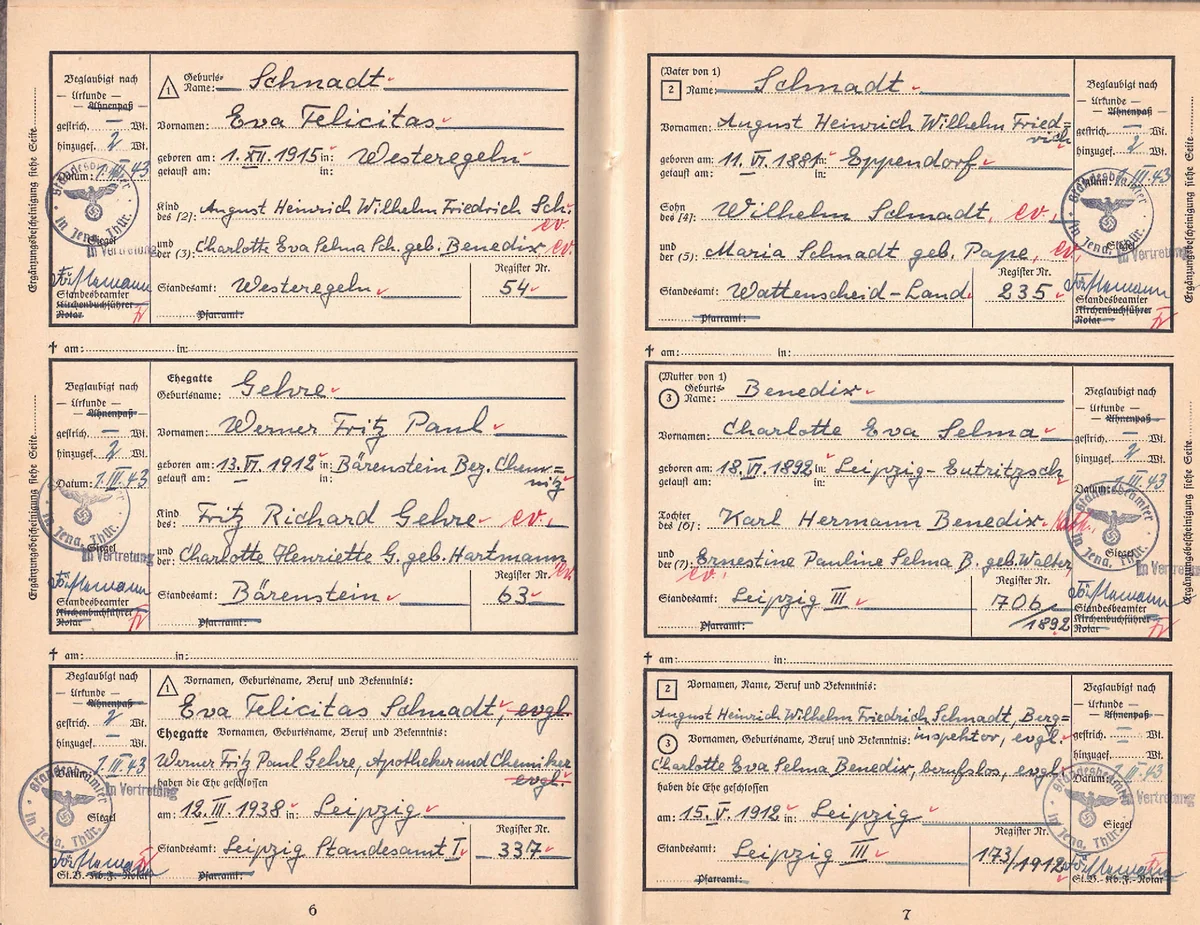 Ergänzungsbescheinigung siehe Seite
Beglaubigt nach
— Urkunde —
— Ahnenpaß —
gestrich. — Wt.
hinzugef. 2 Wt.
Datum: 1.III.43
Standesbeamter
In Jena, Thür.
Siegel
In Vertretung
Standesbeamter
Kirchenbuchführer
Notar
1 Geburts-Name: Schnadt
Vornamen: Eva Felicitas
geboren am: 1. XII. 1915 in: Westeregeln
getauft am: in:
Kind des (2): August Heinrich Wilhelm Friedrich Sch. ev.
und der (3): Charlotte Eva Selma Sch. geb. Benedix, ev.
Register Nr.
Standesamt: Westeregeln 54
Pfarramt:
✝ am: in:
Ergänzungsbescheinigung siehe Seite
Beglaubigt nach
— Urkunde —
— Ahnenpaß —
gestrich. — Wt.
hinzugef. 2 Wt.
Datum: 1.III.43
Standesbeamter
In Jena, Thür.
Siegel
In Vertretung
Standesbeamter
Kirchenbuchführer
Notar
Ehegatte
Geburtsname: Gehre
Vornamen: Werner Fritz Paul
geboren am: 13. VI. 1912 in: Bärenstein Bez. Chem=
getauft am: in: nitz
Kind des: Fritz Richard Gehre ev.
und der: Charlotte Henriette G. geb. Hartmann, ev.
Register Nr.
Standesamt: Bärenstein 63
Pfarramt:
✝ am: in:
Beglaubigt nach
— Urkunde —
— Ahnenpaß —
gestrich. 2 Wt.
hinzugef. — Wt.
Datum: 1.III.43
Standesbeamter
In Jena, Thür.
In Vertretung
Siegel
St.B. Kb.F. Notar
1 Vornamen, Geburtsname, Beruf und Bekenntnis:
Eva Felicitas Schnadt, evgl.
Ehegatte Vornamen, Geburtsname, Beruf und Bekenntnis:
Werner Fritz Paul Gehre, Apotheker und Chemiker
evgl.
haben die Ehe geschlossen
am: 12. III. 1938 in: Leipzig
Register Nr.
Standesamt: Leipzig Standesamt I 337
Pfarramt:
6
(Vater von 1)
2 Name: Schnadt
Vornamen: August Heinrich Wilhelm Fried=
rich
geboren am: 11. VI. 1881 in: Eppendorf
getauft am: in:
Sohn des (4): Wilhelm Schnadt, ev.
und der (5): Maria Schnadt geb. Pape, ev.
Register Nr.
Standesamt: Wattenscheid-Land 235
Pfarramt:
Beglaubigt nach
— Urkunde —
— Ahnenpaß —
gestrich. — Wt.
hinzugef. 2 Wt.
Datum: 1.III.43
Standesbeamter
In Jena, Thür.
Siegel
In Vertretung
Standesbeamter
Kirchenbuchführer
Notar
Ergänzungsbescheinigung siehe Seite
✝ am: in:
(Mutter von 1)
3 Geburts-Name: Benedix
Vornamen: Charlotte Eva Selma
geboren am: 18. VI. 1892 in: Leipzig-Eutritzsch
getauft am: in:
Tochter des (6): Karl Hermann Benedix
und der (7): Ernestine Pauline Selma B. geb. Walter
ev.
Register Nr.
Standesamt: Leipzig III 706/1892
Pfarramt:
Beglaubigt nach
— Urkunde —
— Ahnenpaß —
gestrich. — Wt.
hinzugef. 2 Wt.
Datum: 1.III.43
Standesbeamter
In Jena, Thür.
Siegel
In Vertretung
Standesbeamter
Kirchenbuchführer
Notar
Ergänzungsbescheinigung siehe Seite
✝ am: in:
2 Vornamen, Name, Beruf und Bekenntnis:
August Heinrich Wilhelm Friedrich Schnadt, Berg=
3 Vornamen, Geburtsname, Beruf und Bekenntnis: inspektor, evgl.
Charlotte Eva Selma Benedix, berufslos, evgl.
haben die Ehe geschlossen
am: 15. V. 1912 in: Leipzig
Register Nr.
Standesamt: Leipzig III 173/1912
Pfarramt:
Beglaubigt nach
— Urkunde —
— Ahnenpaß —
gestrich. — Wt.
hinzugef. — Wt.
Datum: 1.III.43
Standesbeamter
In Jena, Thür.
In Vertretung
Siegel
St.B. Kb.F. Notar
7